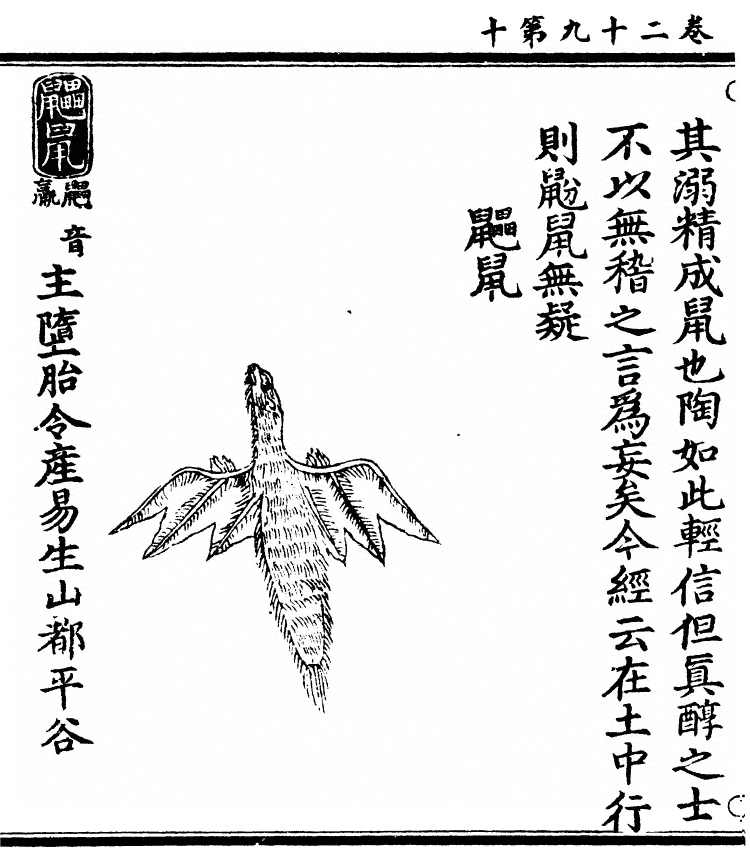 卷二十九第十
其溺精成鼠也陶如此輕信但眞醇之士
不以無稽之言爲妄矣今經云在土中行
則鼢鼠無疑
鼺鼠
鼺鼠鼺音羸主墮胎令産易生山都平谷